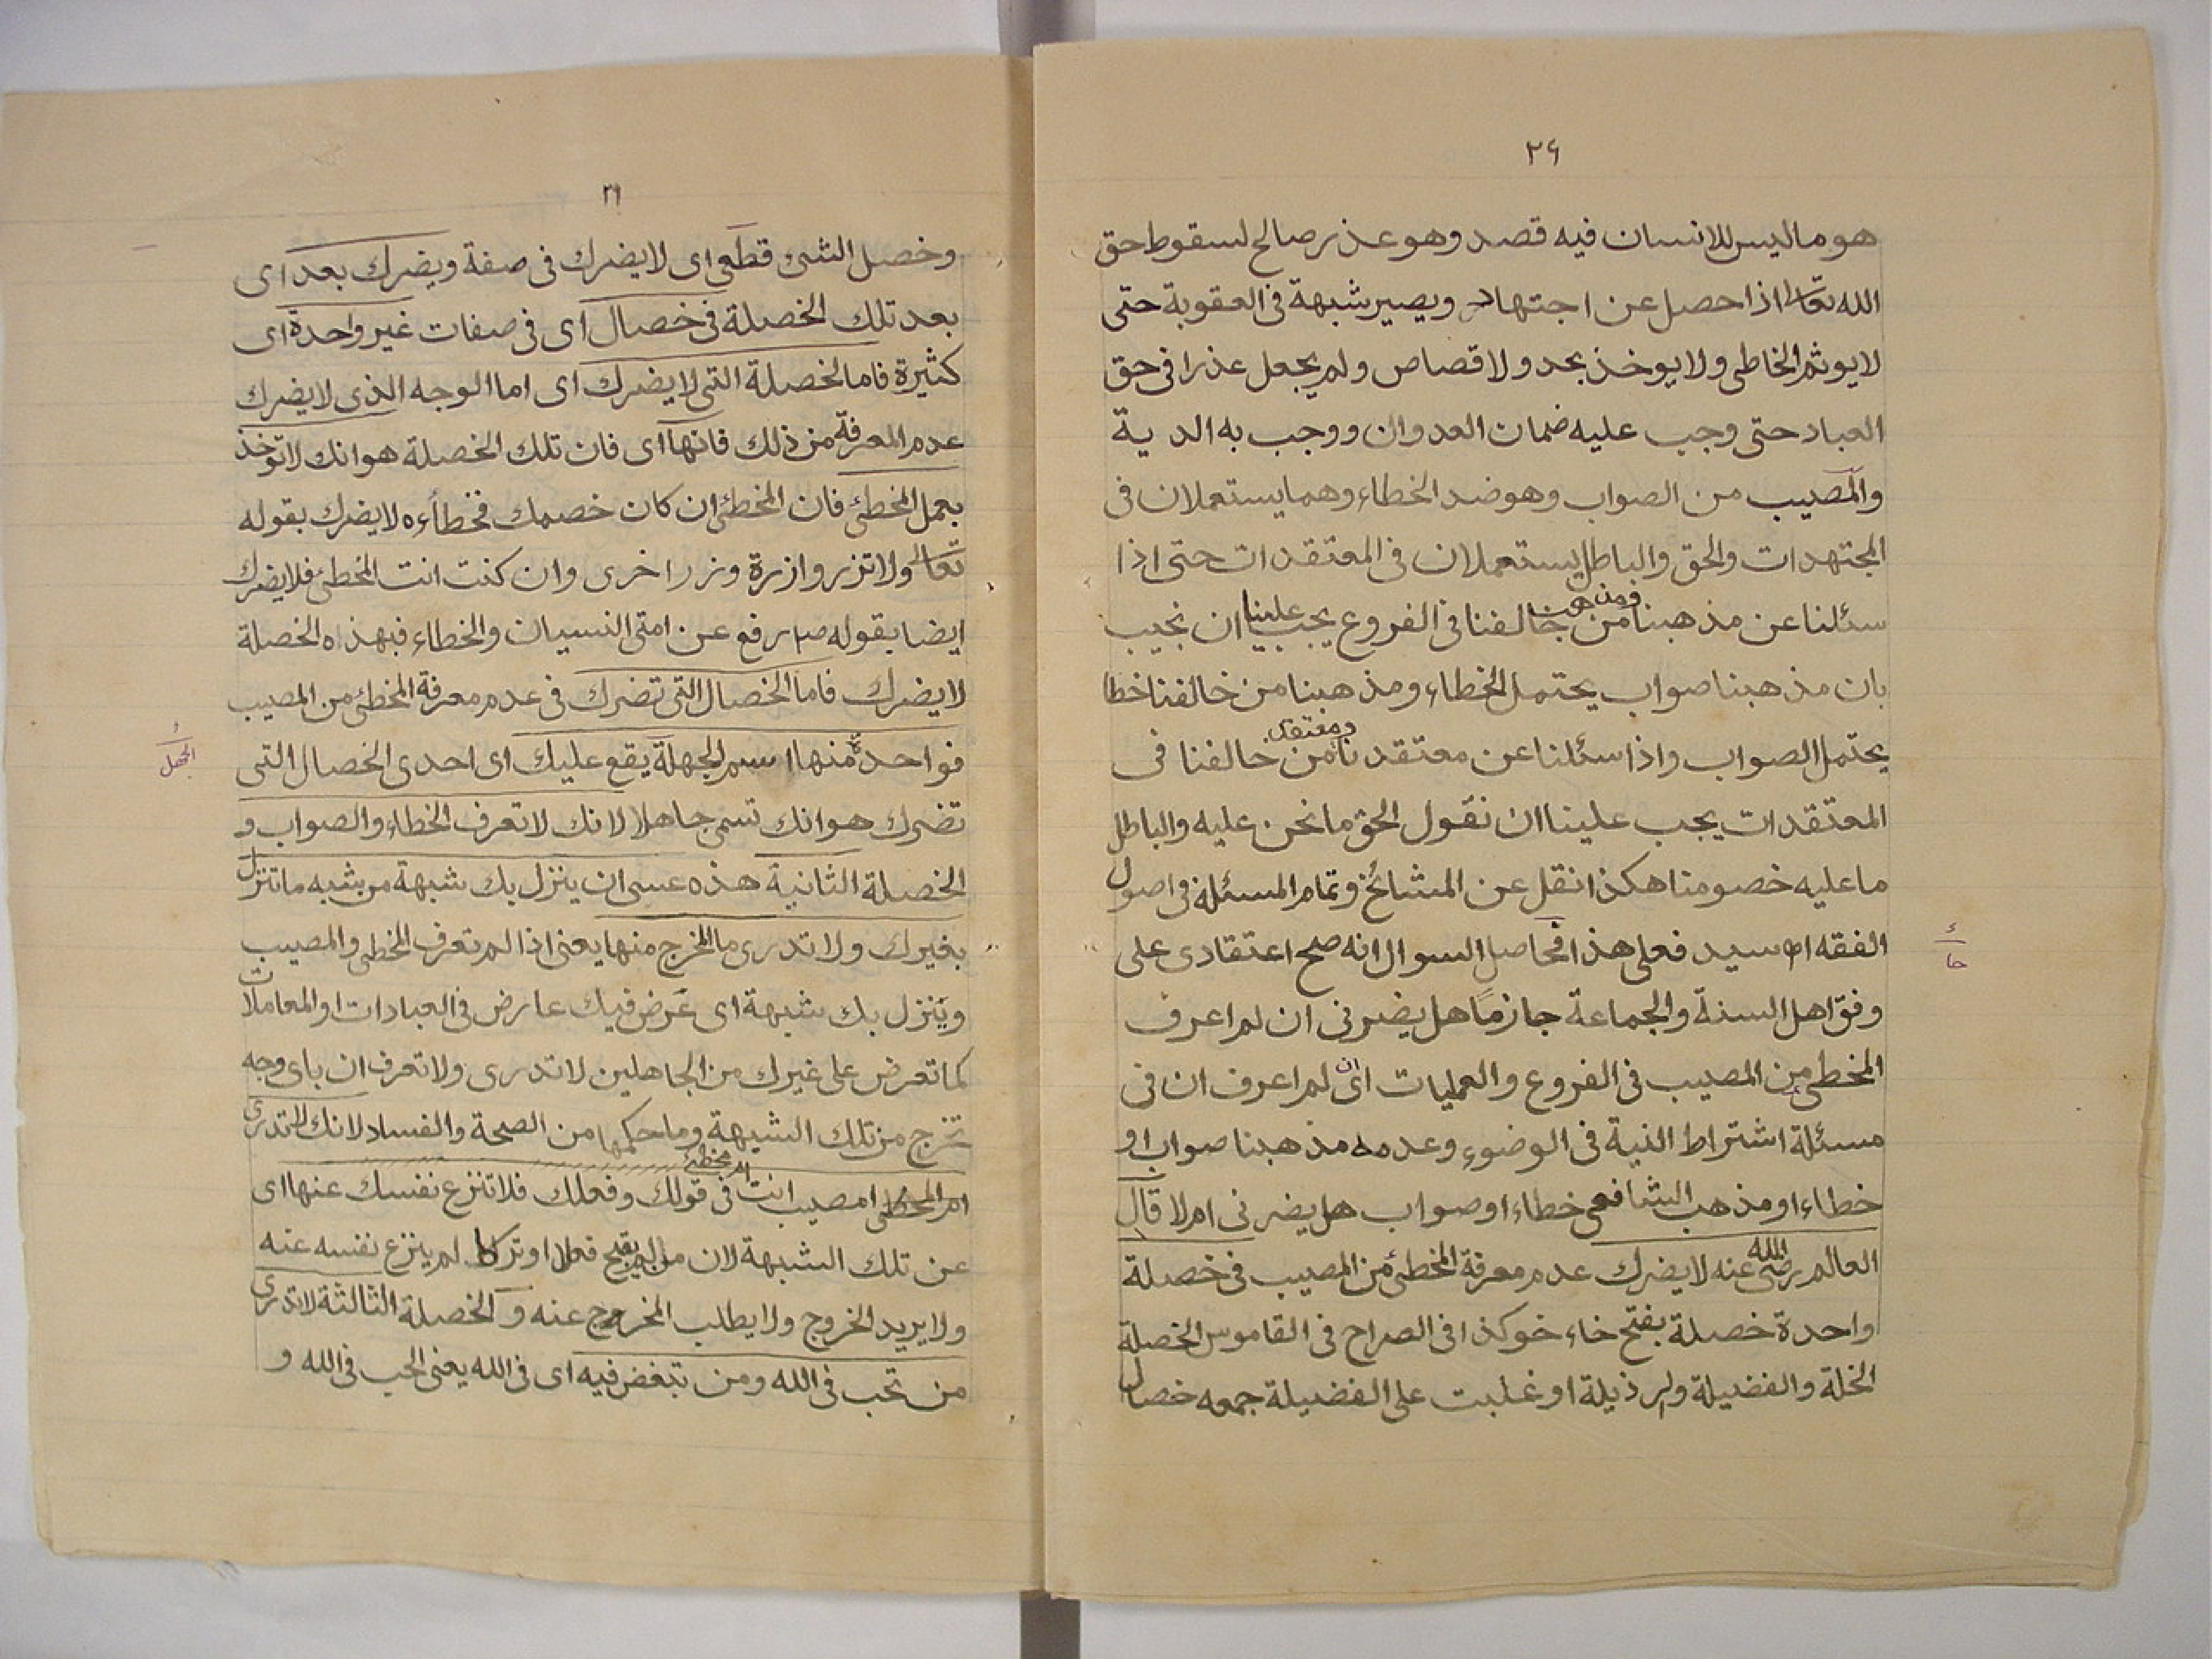 ٢٦
هو ما ليس للانسان فيه قصد وهو عذر صالح لسقوط حق
الله تعالى اذا حصل عن اجتهاد ويصير شبهة فى العقوبة حتى
لا يوثم الخاطى ولا يوخذ بحد ولا قصاص ولم يجعل عذرا فى حق
العباد حتى وجب عليه ضمان العدوان ووجب به الدية
والمصيب من الصواب وهو ضد الخطاء وهما يستعملان فى
المجتهدات والحق والباطل يستعملان فى المعتقدات حتى اذا
سئلنا عن مذهبنا ومذهب من خالفنا فى الفروع يجب علينا ان نجيب
بان مذهبنا صواب يحتمل الخطاء ومذهبنا من خالفنا خطا
يحتمل الصواب واذا سئلنا عن معتقدنا ومعتقد من خالفنا فى
المعتقدات يجب علينا ان نقول الحق ما نحن عليه والباطل
ما عليه خصومنا هكذا نقل عن المشائخ وتمام المسئلة فى اصول
الفقه سيد فعلى هذا فحاصل السوال انه صح اعتقادى على
حا
وفق اهل السنة والجماعة جازمًا هل يضرنى ان لم اعرف
المخطئ من المصيب فى الفروع والعمليات اى ان لم اعرف ان فى
مسئلة اشتراط النية فى الوضوء وعدمه مذهبنا صواب او
خطاء او مذهب الشافعى خطاء او صواب هل يضرنى ام لا قال
العالم رضى الله عنه لا يضرك عدم معرفة المخطئ من المصيب فى خصلة
واحدة خصلة بفتح خاء خو كذا فى الصراح فى القاموس الخصلة
الخلة والفضيلة والرذيلة او غلبت على الفضيلة جمعه خصال
٢٦
وخصل الشئ قطعى اى لا يضرك فى صفة ويضرك بعد اى
بعد تلك الخصلة فى خصال اى فى صفات غير واحدة اى
كثيرة فاما الخصلة التى لا يضرك اى اما الوجه الذى لا يضرك
عدم المعرفة من ذلك فانها اى فان تلك الخصلة هو انك لا توخذ
بعمل المخطئ فان المخطئ ان كان خصمك فخطأءه لا يضرك بقوله
تعالى ولا تزر وازرة وزر اخرى وان كنت انت المخطئ فلا يضرك
ايضا بقوله ص رفع عن امتى النسيان والخطاء فبهذاه الخصلة
لا يضرك فاما الخصال التى تضرك فى عدم معرفة المخطئ من المصيب
فواحدة منها اسم الجهلة يقع عليك اى احدى الخصال التى
الجهل
تضرك هو انك تسمى جاهلا لانك لا تعرف الخطاء والصواب و
الخصلة الثانية هذه عسى ان ينزل بك شبهة من شبه ما تنزل
بغيرك ولا تدرى ما المخرج منها يعنى اذا لم تعرف المخطى والمصيب
وينزل بك شبهة اى عرض فيك عارض فى العبادات او المعاملات
كما تعرض على غيرك من الجاهلين لا تدرى ولا تعرف ان باى وجه
تخرج من تلك الشبهة وما حكمها من الصحة والفساد لانك لا تدرى
ام المخطى امصيب انت ام مخطئ فى قولك وفعلك فلا تنزع نفسك عنها اى
عن تلك الشبهة لان من لم يقبح فعلا او تركا لم ينزع نفسه عنه
ولا يريد الخروج ولا يطلب المخروج عنه و الخصلة الثالثة لا تدرى
من تحب فى الله ومن تبغض فيه اى فى الله يعنى الحب فى الله و